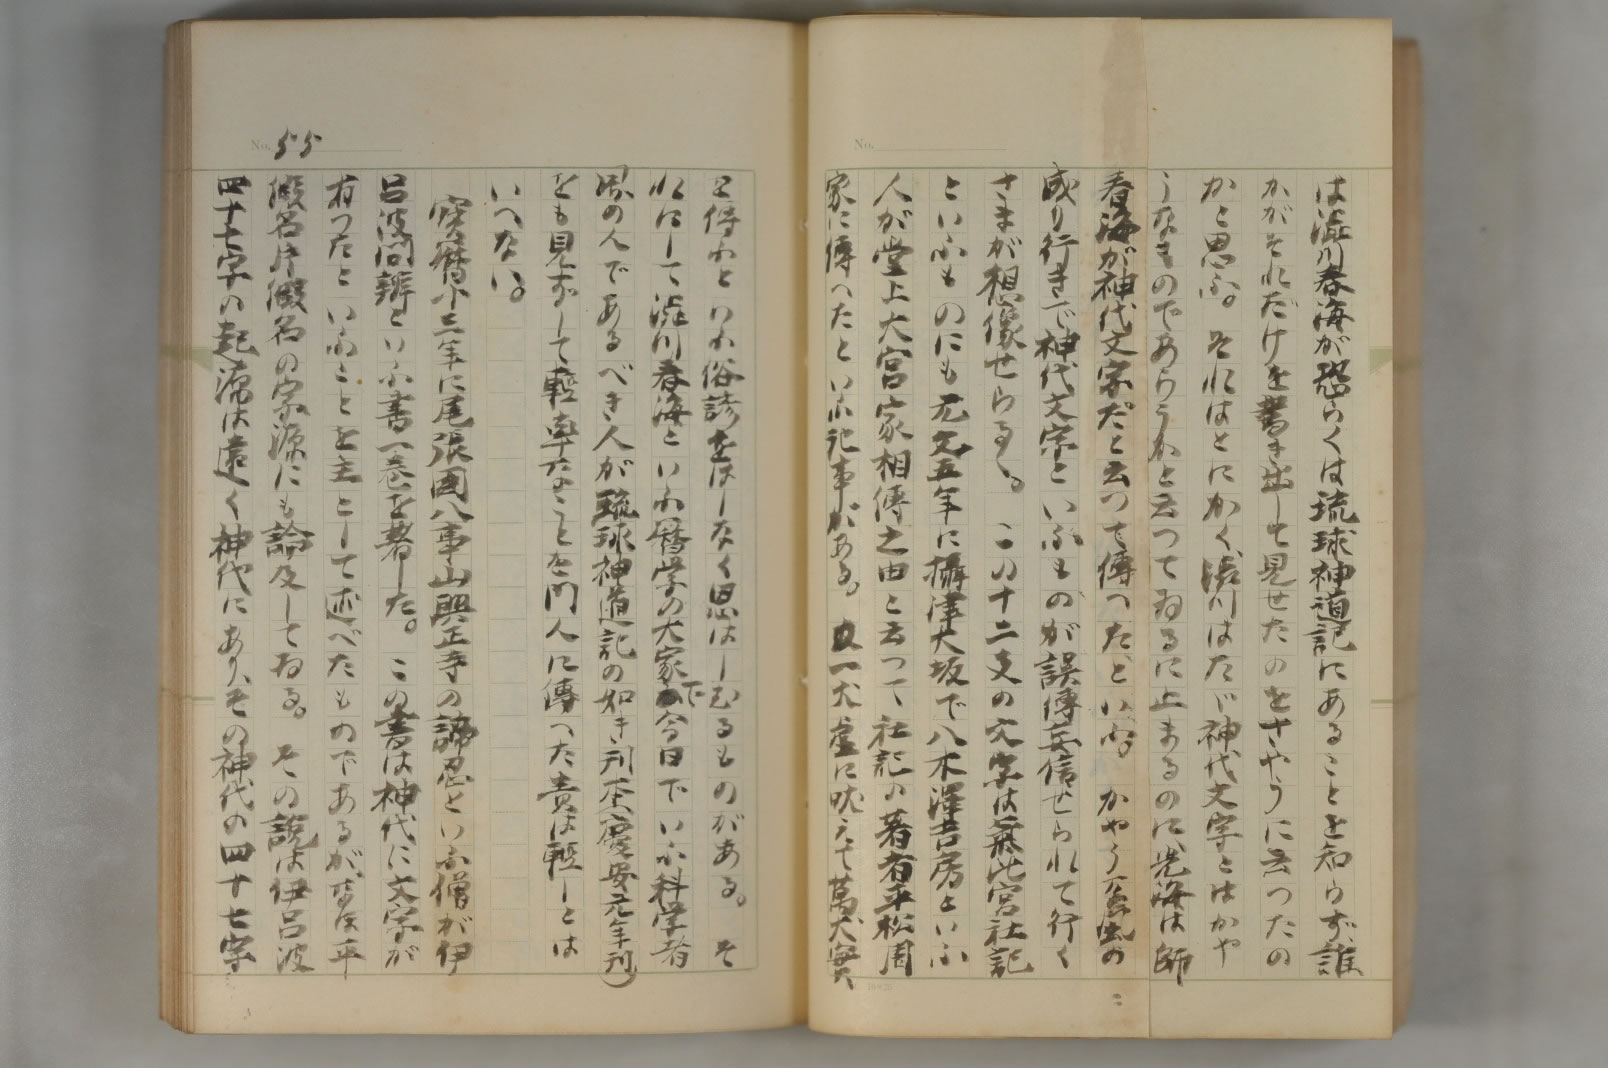 は澁川春海が恐らくは琉球神道記にあることを知らず、誰
かがそれだけを書き出して見せたのをさやうに云つたの
かと思ふ。それはとにかく、澁川はたゞ神代文字とはかや
うなものであらうかと云つてゐるに止まるのに、光海は師
春海が神代文字だと云つて傳へたといふ。かやうな風の
成り行きで神代文字といふものが誤傳妄信せられて行く
さまが想像せらるゝ。この十二支の文字は、
といふものにも元文五年に攝津大坂で八木澤吉房といふ
人が堂上大宮家相傳之由と云つて社記の著者平松周
家に傳へたといふ記事がある。一犬虚に吠えて萬犬實
No.
No. 55
を傳ふといふ俗諺をはしなく思はしむるものがある。そ
れにして澁川春海といふ暦学の大家で今日でいふ科学者
風の人であるべき人が琉球神道記の如き刊本(慶安元年刊)
をも見ずして輕率なことを門人に傳へた責は輕しとは
いへない。
寳暦十三年に尾張國八事山興正寺の諦忍といふ僧が伊
呂波問辨といふ書一巻を著した。この書は神代に文字が
有つたといふことを主として述べたものであるが、なほ平
假名片假名の宗源にも論及してゐる。その説は伊呂波
四十七字の起源は遠く神代にあり、その神代の四十七字